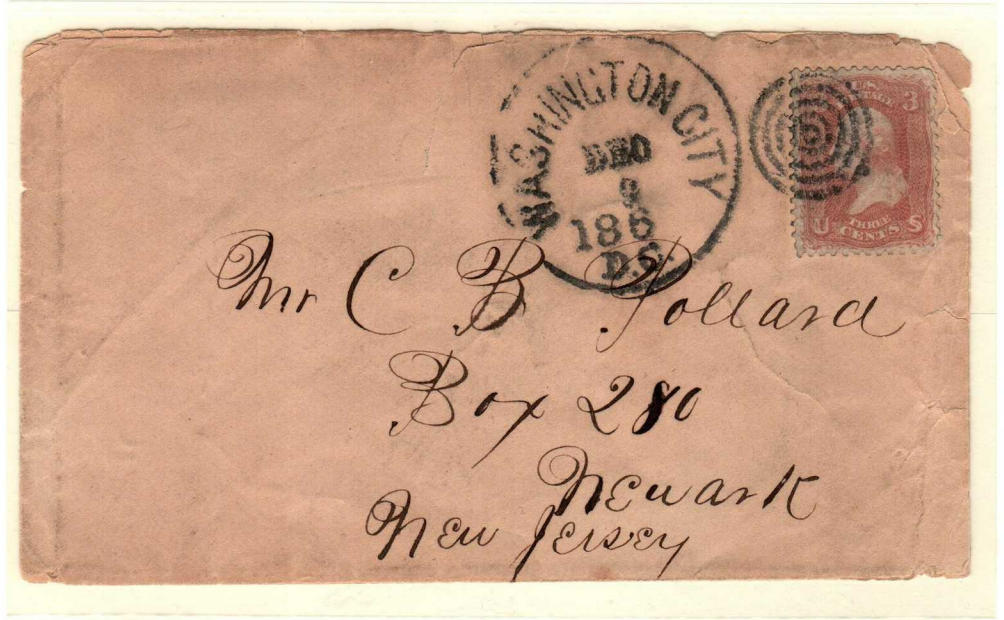 WASHINGTON CITY
DEC
186
D.C.
U.S. POSTAGE 3
THREE
U CENTS S
Mr C B Pollard
Box 280
Newark
New Jersey